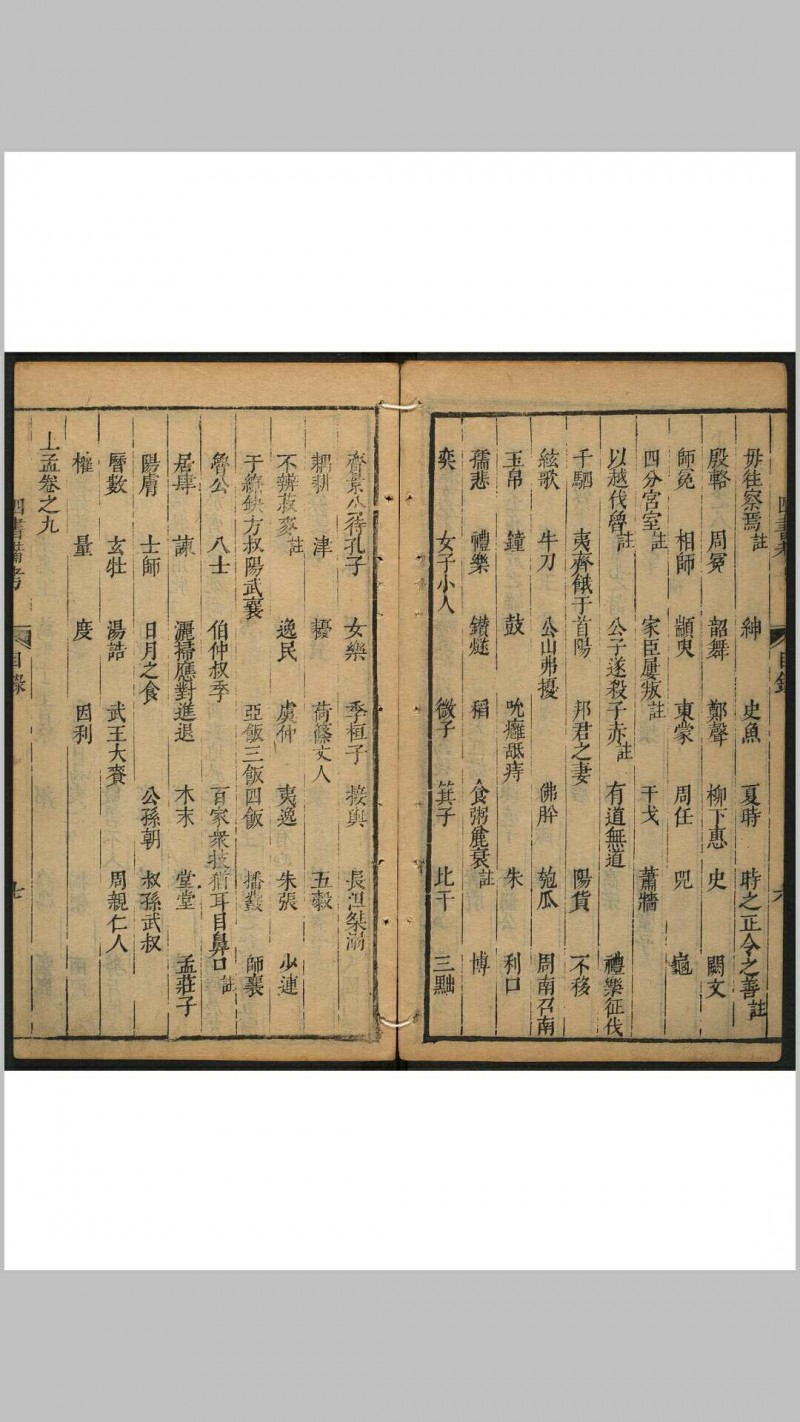 毋往察焉註 紳 史魚 夏時 時之正令之善註
殷輅 周冕 韶舞 鄭聲 柳下惠 史 闕文
師冕 相師 顓臾 東蒙 周任 兕 龜
四分宮室註 家臣屢叛註 干戈 蕭牆
以越伐魯註 公子遂殺子赤註 有道無道 禮樂征伐
千駟 夷齊餓于首陽 邦君之妻 陽貨 不移
絃歌 牛刀 公山弗擾 佛肸 匏瓜 周南召南
玉帛 鐘 鼓 吮癰舐痔 朱 利口
孺悲 禮樂 鑽燧 稻 食粥麄衰註 博
奕 女子小人 微子 箕子 比干 三黜
齊景公待孔子 女樂 季桓子 接輿 長沮桀溺
耦耕 津 擾 荷篠丈人 五穀
不辨菽麥註 逸民 虞仲 夷逸 朱張 少連
干繚缺方叔陽武襄 亞飯三飯四飯 播鼗 師襄
魯公 八士 伯仲叔季 百家衆技猶耳目鼻口註
居肆 諫 灑掃應對進退 木末 堂堂 孟莊子
陽膚 士師 日月之食 公孫朝 叔孫武叔
曆數 玄牡 湯誥 武王大賚 周親仁人
權 量 度 因利
上孟卷之九
四書備考 目錄 七